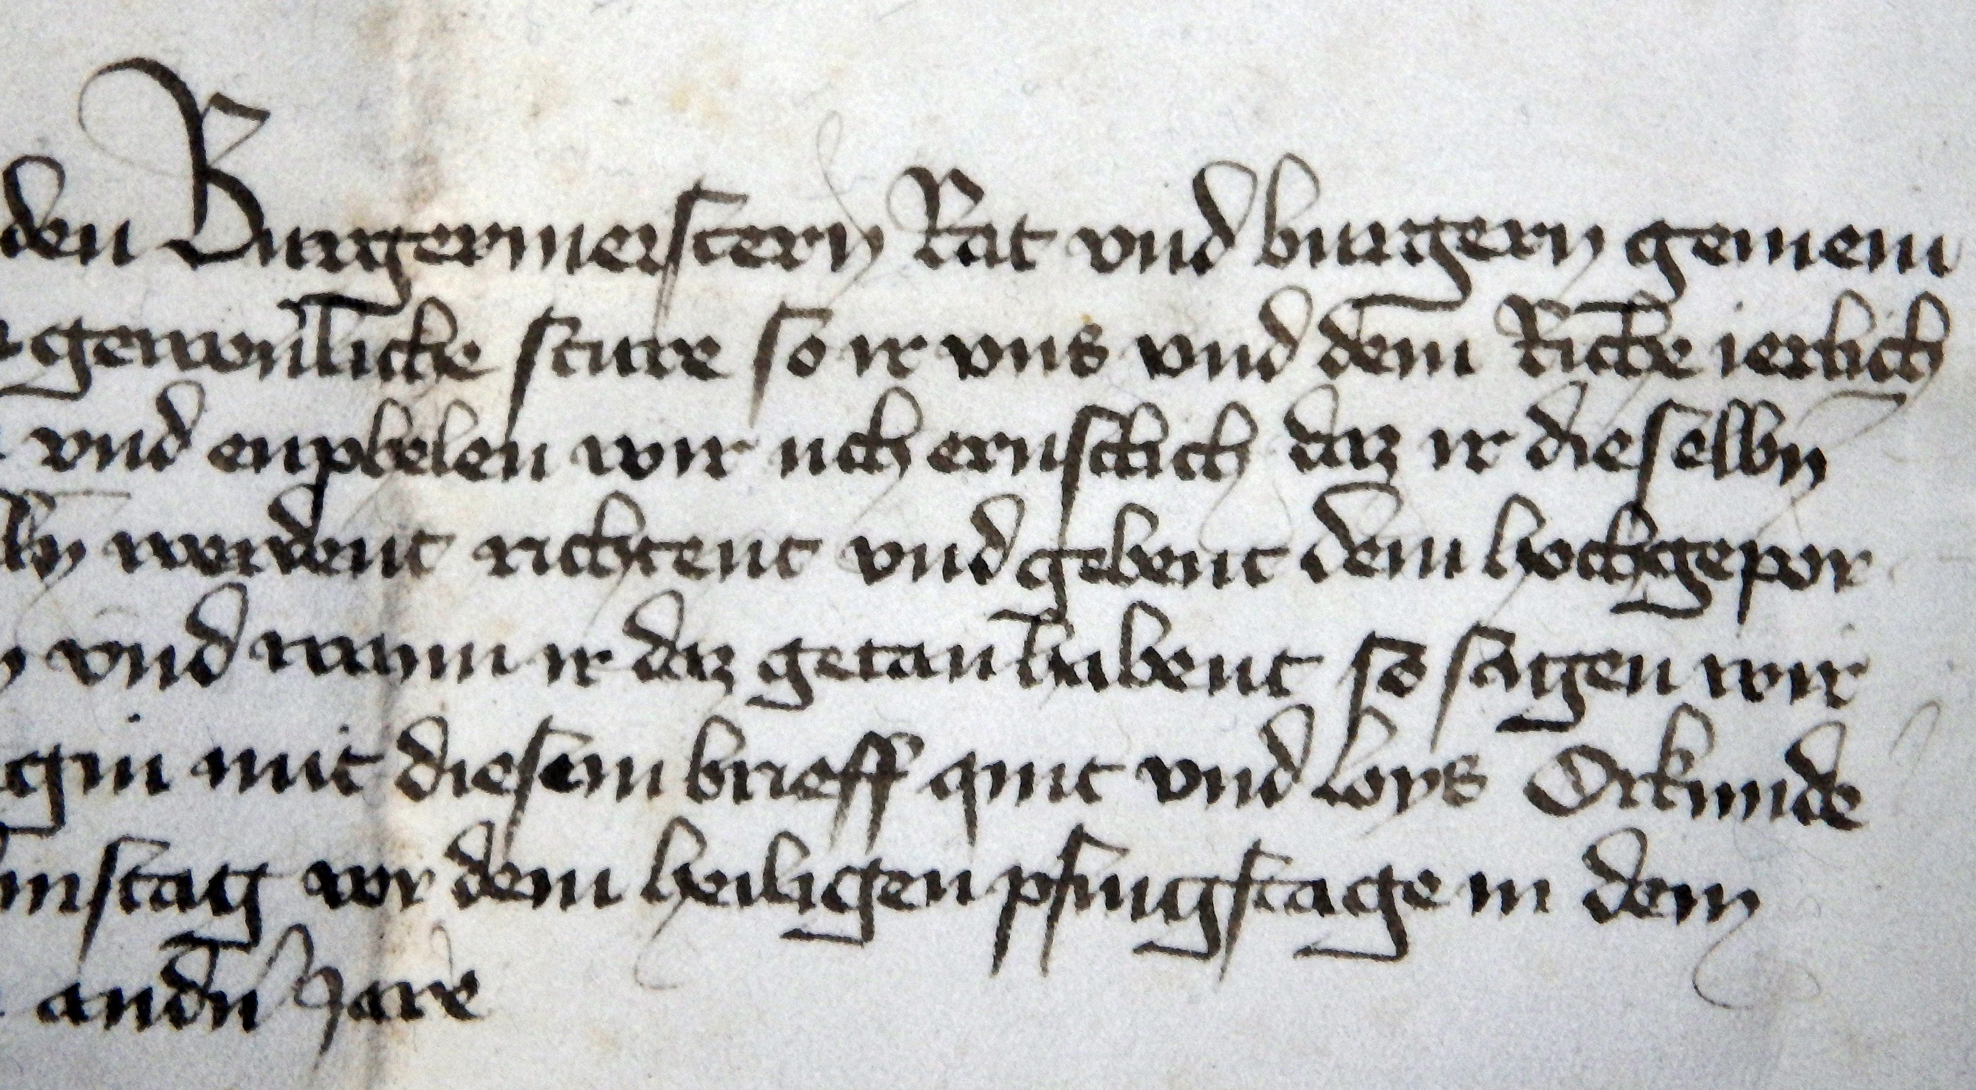 den Burgermeistern Rat vnd burgern gemein
gewonliche sture so ir vns vnd dem Riche ierlich
vnd enpbelen wir uch ernstlich daz ir dieselbn
werdent richtent vnd gebent dem hochgepor
vnd wann ir daz getan habent so sagen wir
mit diesem brieff quit vnd loys Orkunde
vor dem heiligen pfingstage in dem
andn Jare